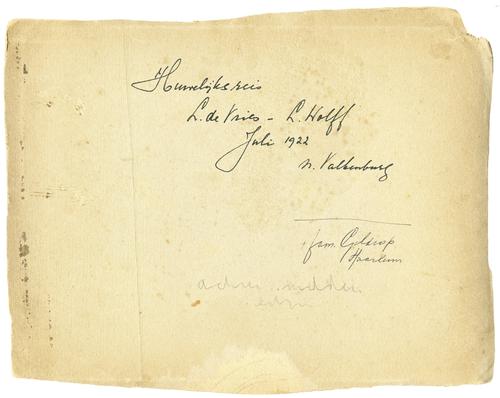 Huwelijksreis
L. de Vries - L. Wolff
Juli 1922
n. Valkenburg
fam. Geldrop
Haarlem